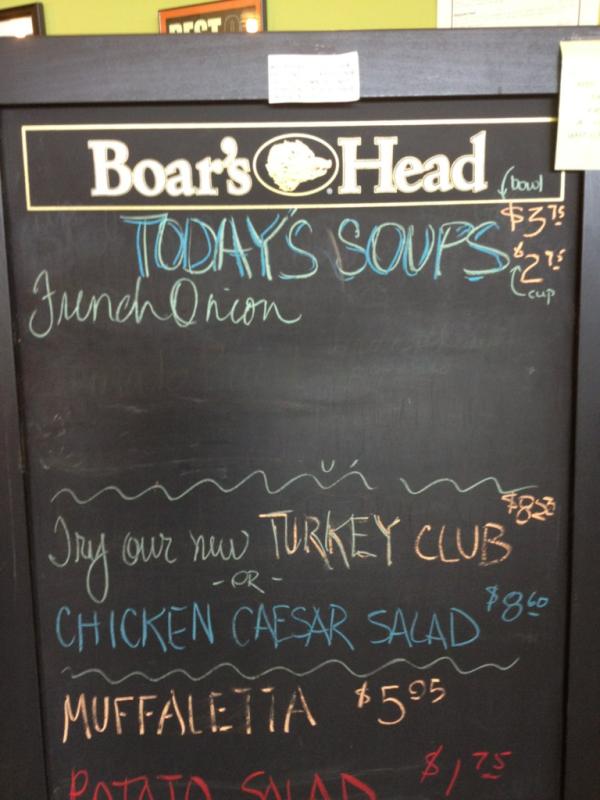 BEST
Boar's Head
bowl
TODAY'S SOUPS $3.75
$2.75
cup
French Onion
Try our new TURKEY CLUB
-OR-
CHICKEN CAESAR SALAD $8.60
MUFFALETTA $5.95
POTATO SALAD $1.75